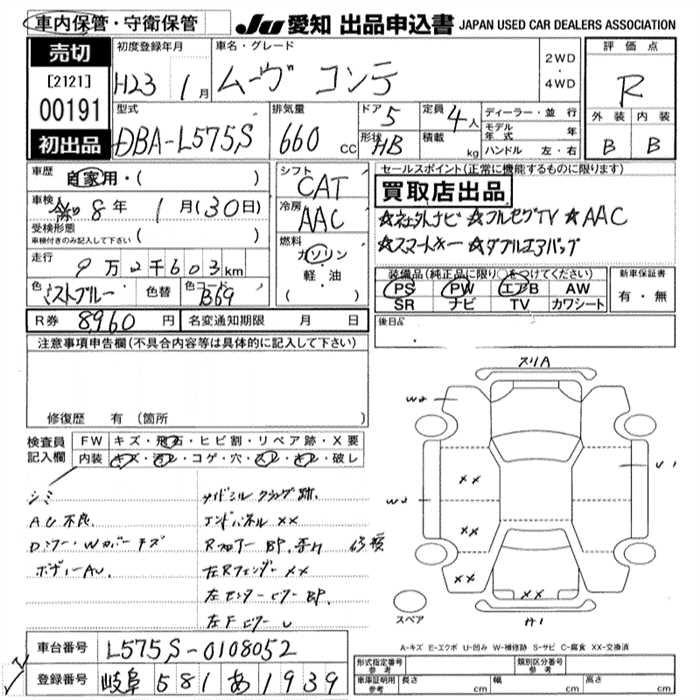 車内保管・守衛保管
JU 愛知 出品申込書 JAPAN USED CAR DEALERS ASSOCIATION
売切
[2121]
00191
初出品
初度登録年月
H23 1月
車名・グレード
ムーヴ コンテ
2WD
・
4WD
評価点
R
外装 内装
B B
型式
DBA-L575S
排気量
660 cc
ドア 5
形状 HB
定員 4人
積載 kg
ディーラー・並行
モデル年式 年
ハンドル 左・右
車歴 自家用・( )
車検 令和 8年 1月(30日)
受検形態
車検付きのみ記入して下さい ( )
走行 9万2千603km
色 ミストブルー 色替 色コード B69
シフト
CAT
冷房
AAC
燃料
ガソリン
・
軽・油
( )
セールスポイント(正常に機能するものに限ります)
買取店出品
☆社外ナビ ☆フルセグTV ☆AAC
☆スマートキー ☆ダブルエアバッグ
装備品(純正品に限り○をつけてください)
PS PW エアB AW
SR ナビ TV カワシート
新車保証書
有・無
後日品
R券 8960円 名変通知期限 月 日
注意事項申告欄(不具合内容等は具体的に記入して下さい)
修復歴 有(箇所 )
検査員記入欄
FW キズ・飛石・ヒビ割・リペア跡・X要
内装 キズ・汚レ・コゲ・穴・スレ・キレ・破レ
シミ
AC不良
ボディーAU
サイドシル クランプ跡
エンドパネル XX
左Rフェンダー XX
左センターピラー BP.
左Fピラー U
スリA
W2
W2
XX
XX
XX
XX
U1
A1
スペア
A-キズ E-エクボ U-凹み W-補修跡 S-サビ C-腐食 XX-交換済
車台番号 L575S-0108052
登録番号 岐阜 581 あ 1939
形式指定番号 参考
類別区分番号 参考
車庫証明用 参考 長さ cm 幅 cm 高さ cm